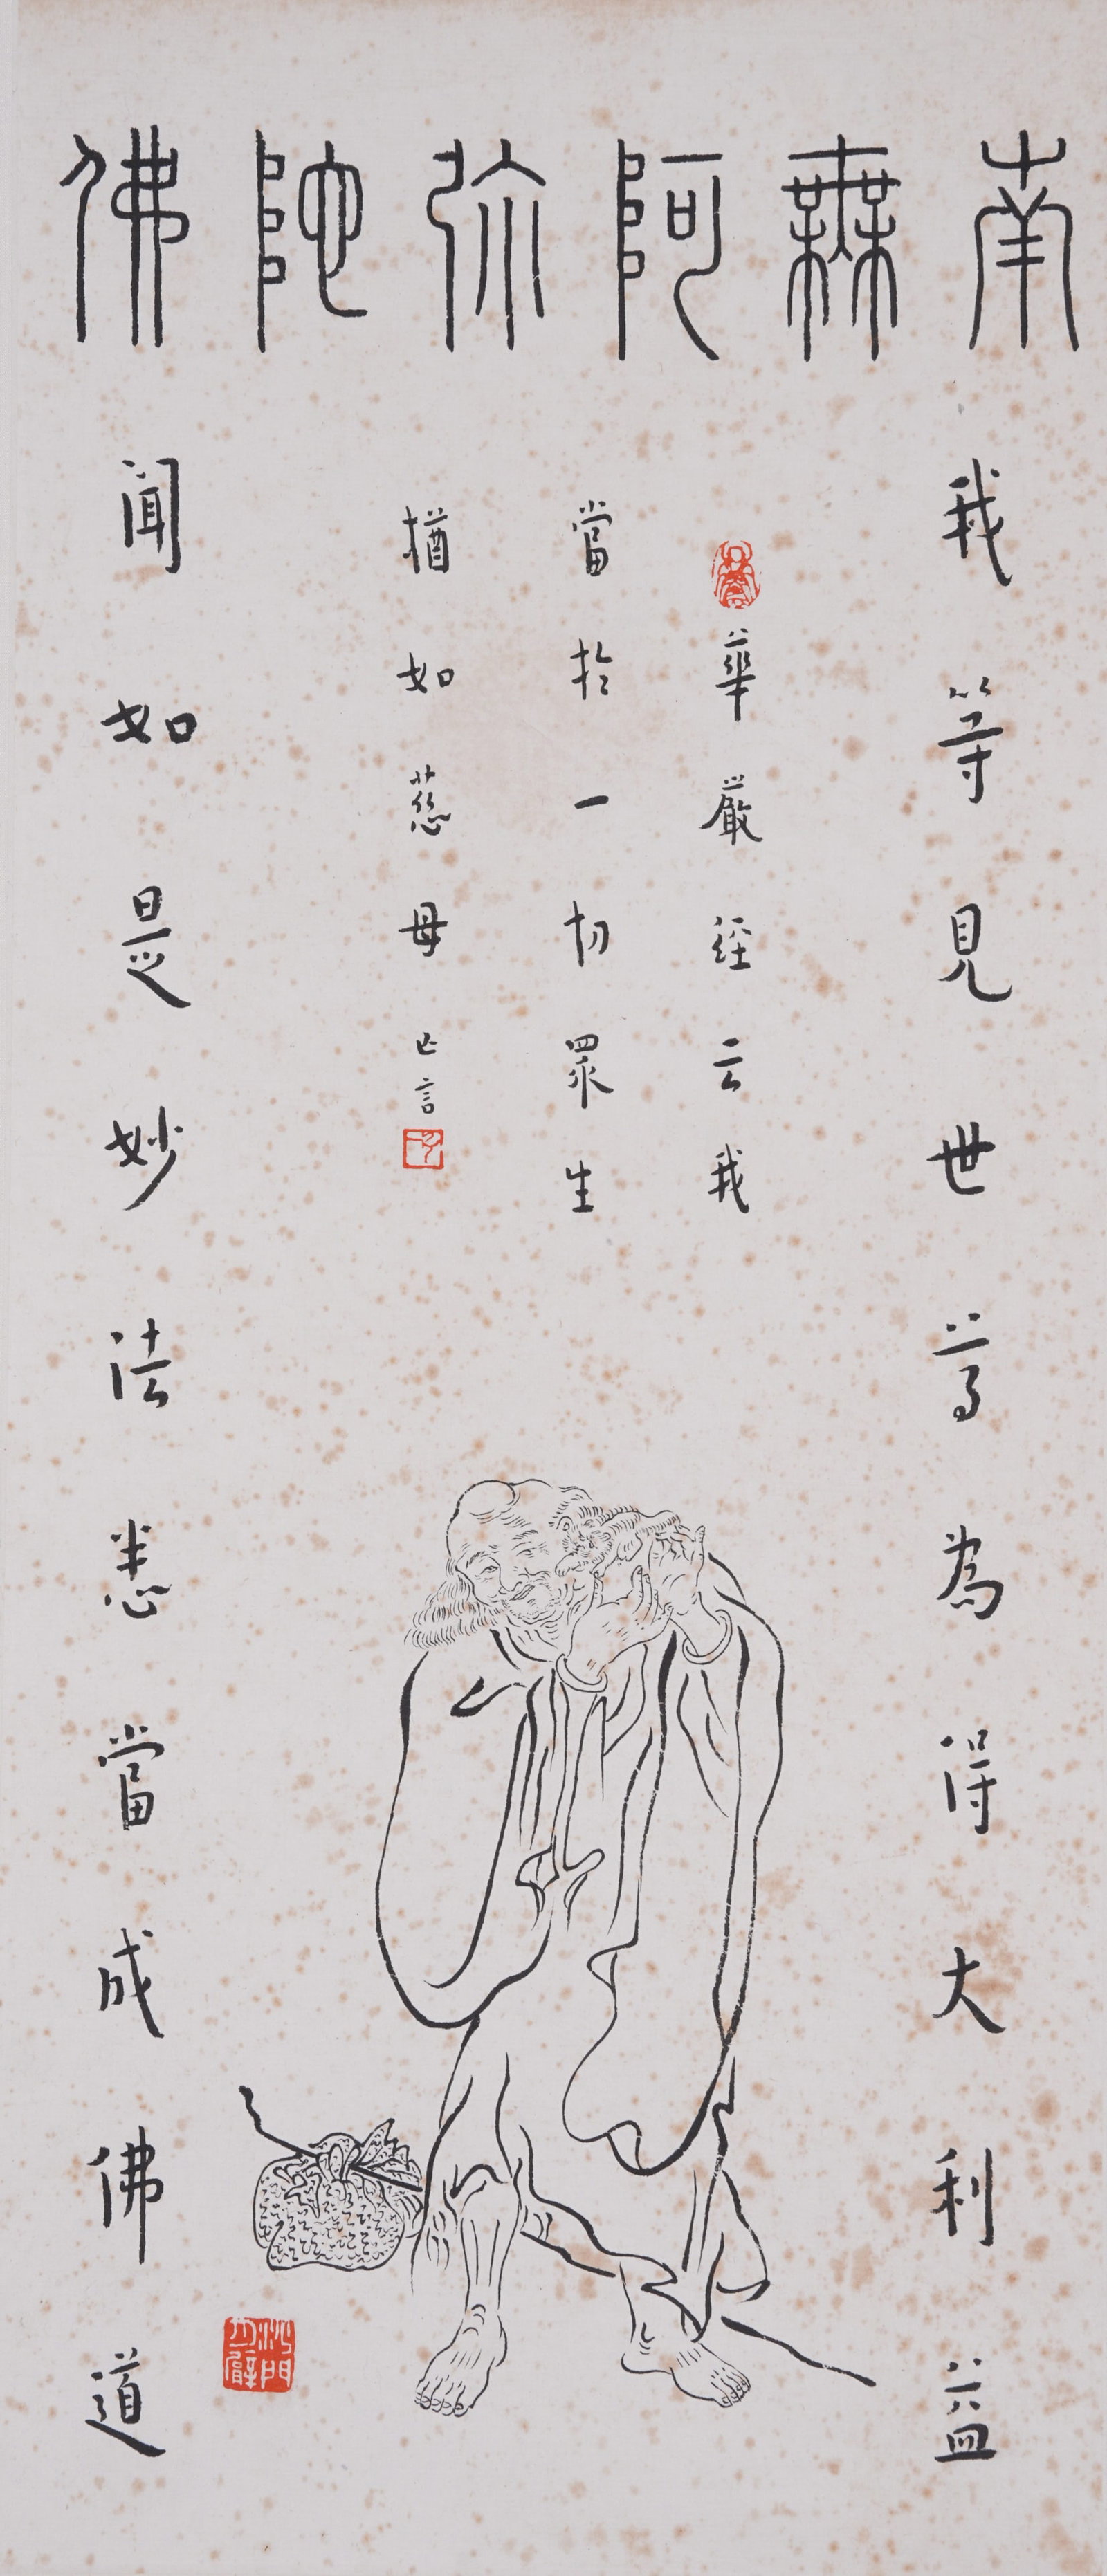 南無阿弥陀佛
我等見世尊為得大利益
華嚴經云我
當於一切眾生
猶如慈母 亡言
聞如是妙法悉當成佛道
沙門月臂